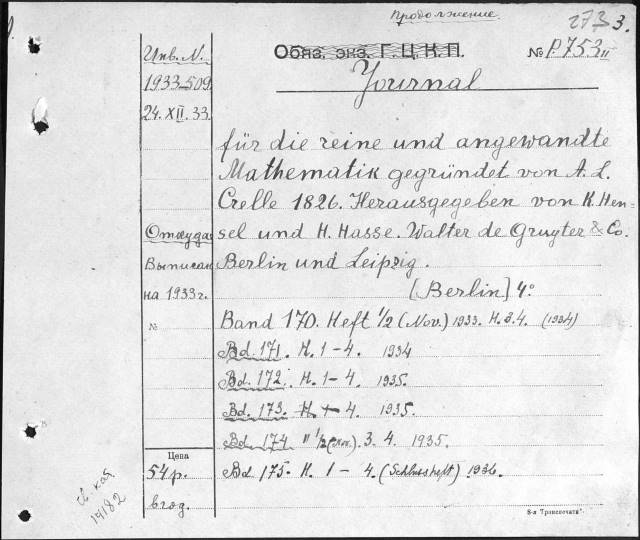 Продолжение
3.
Инв. N.
Обяз. экз. Г.Ц.К.П.
№ P.753 II
1933-509
Journal
24. XII. 33
für die reine und angewandte
Mathematik gegründet von A. L.
Crelle 1826. Herausgegeben von K. Hen-
Откуда sel und H. Hasse. Walter de Gruyter & Co.
Выписан Berlin und Leipzig.
на 1933 г. [Berlin] 4°
№ Band 170. Heft 1/2 (Nov.) 1933. H. 3.4. (1934)
Bd. 171. H. 1-4. 1934
Bd. 172. H. 1-4. 1935.
Bd. 173. H. 1-4. 1935.
Bd. 174 " 1/2 (Nov.). 3. 4. 1935.
Цена
54 р. Bd 175. H. 1-4. (Schlussheft) 1936.
в год.
14182
8-я "Транспечати"